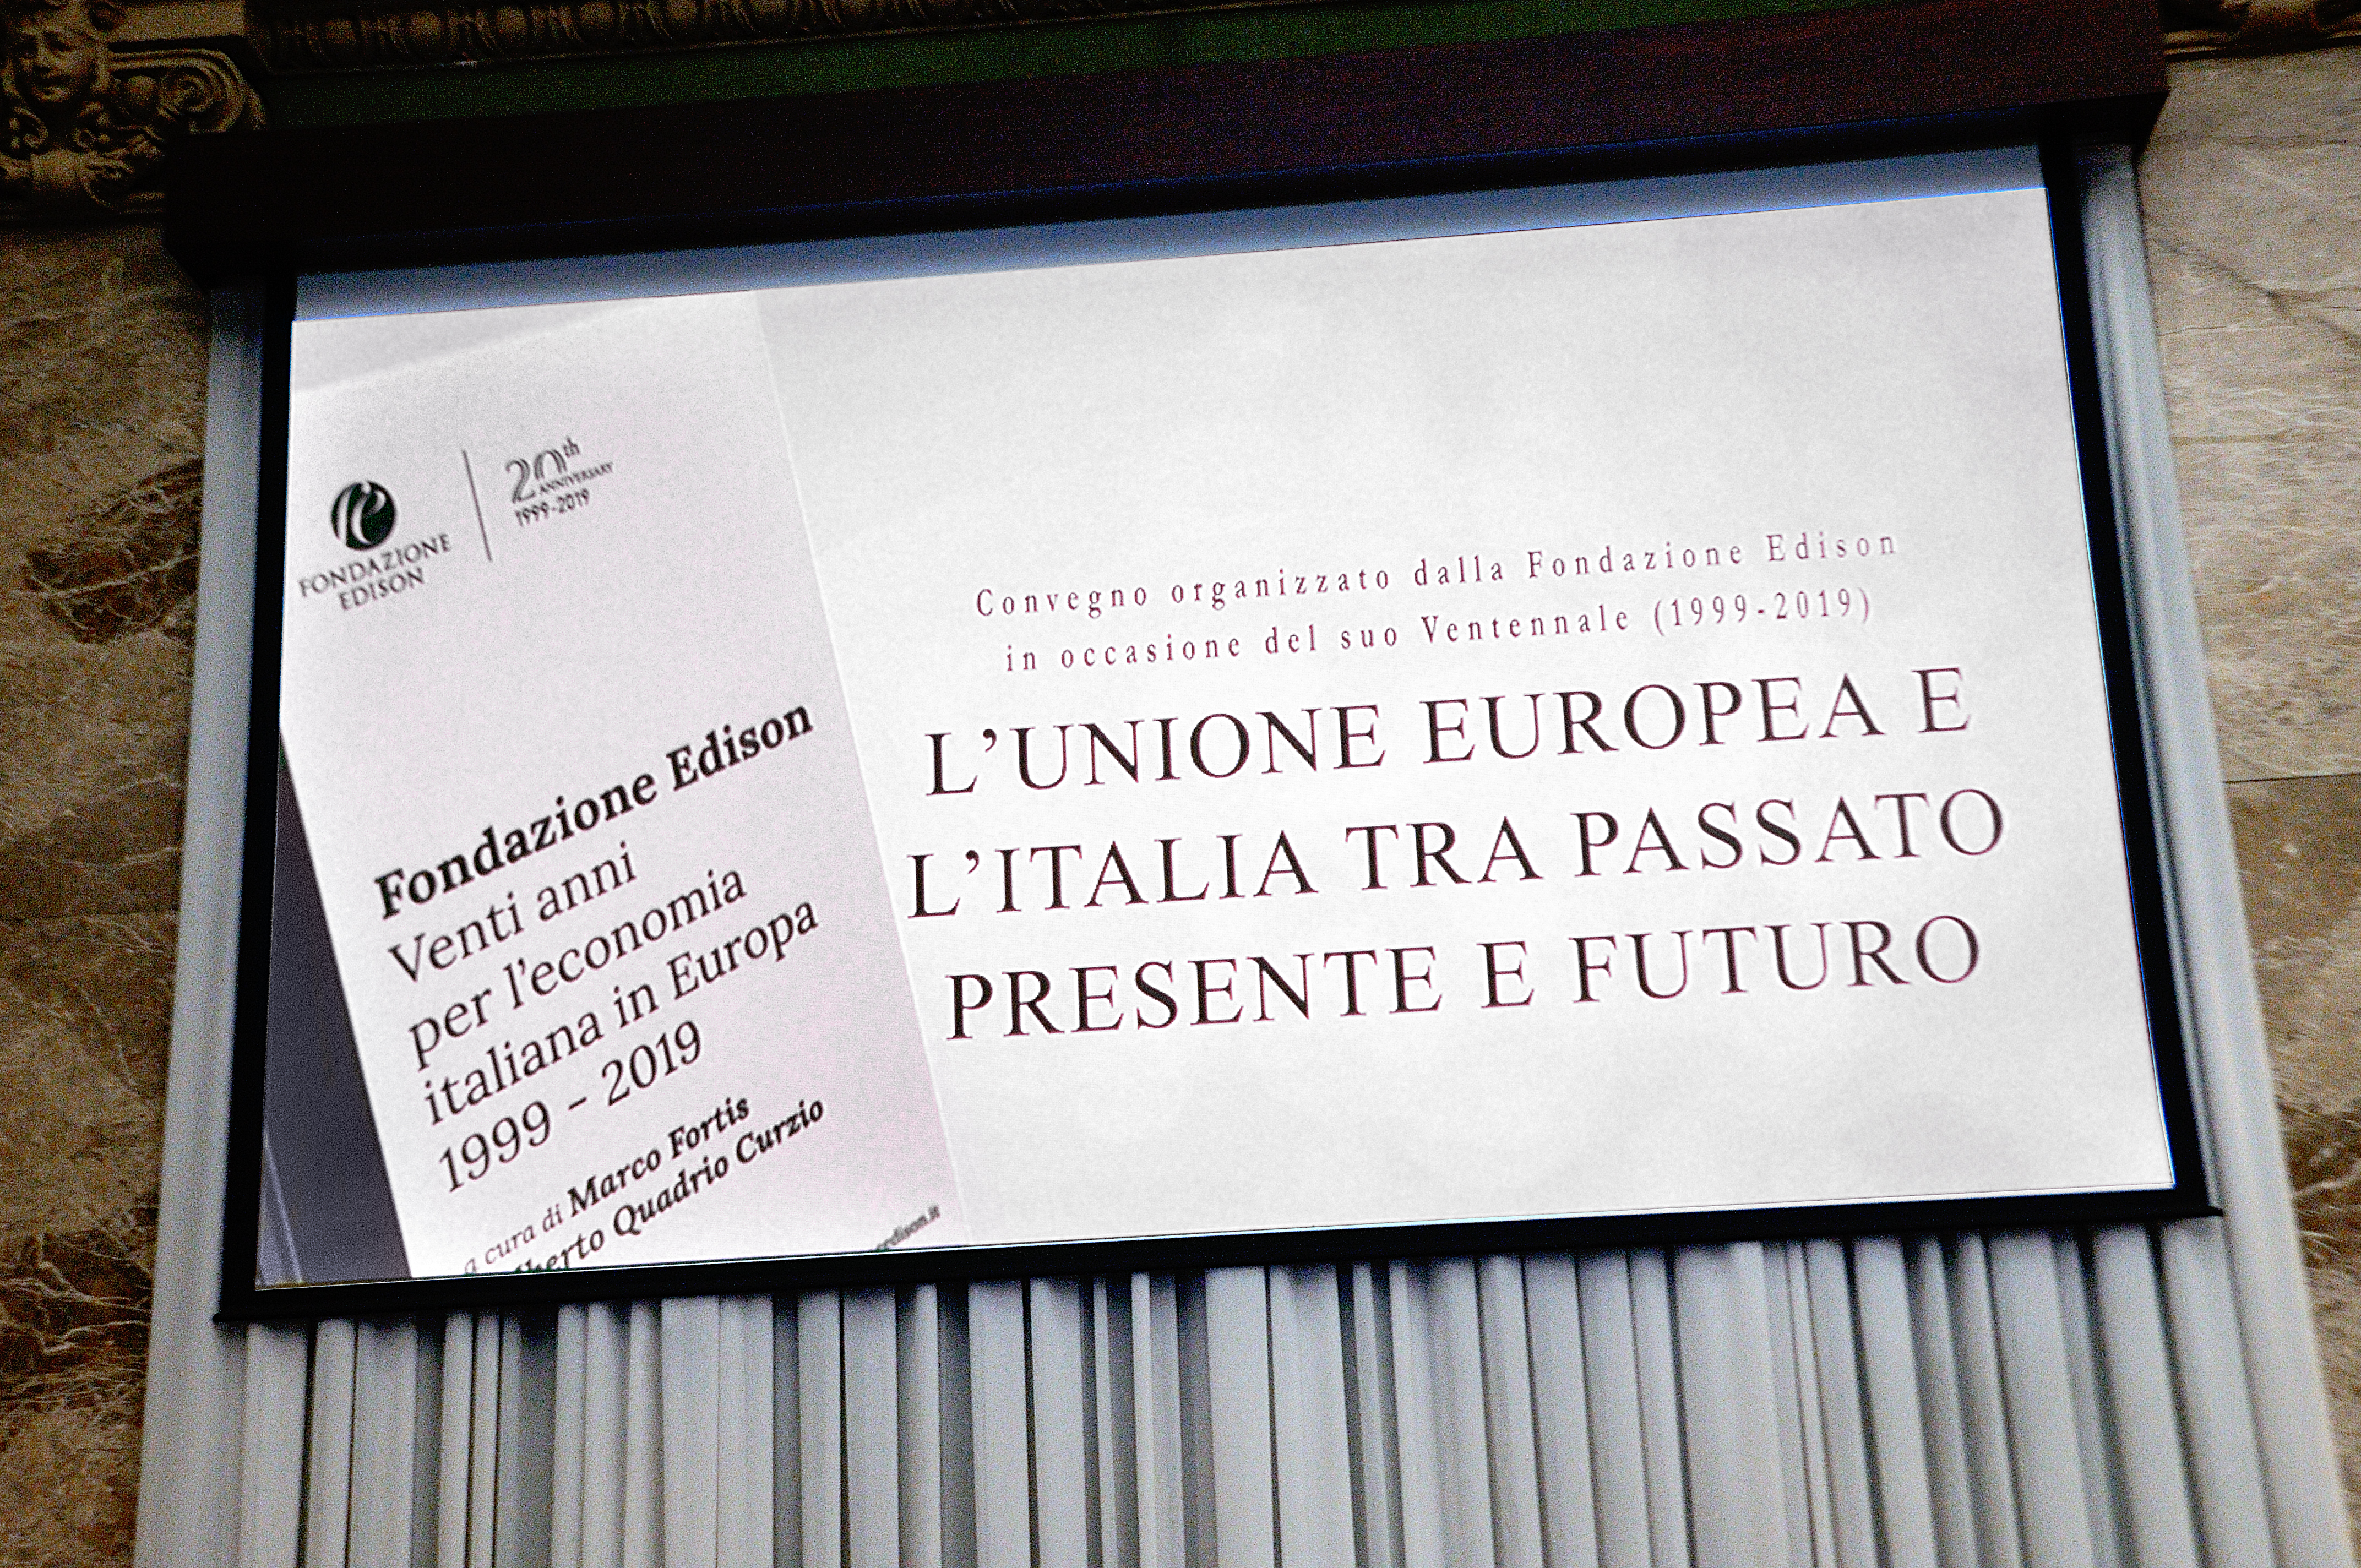 FONDAZIONE
EDISON
20th
ANNIVERSARY
1999-2019
Fondazione Edison
Venti anni
per l'economia
italiana in Europa
1999 - 2019
a cura di Marco Fortis
Quadrio Curzio
Convegno organizzato dalla Fondazione Edison
in occasione del suo Ventennale (1999-2019)
L’UNIONE EUROPEA E
L’ITALIA TRA PASSATO
PRESENTE E FUTURO